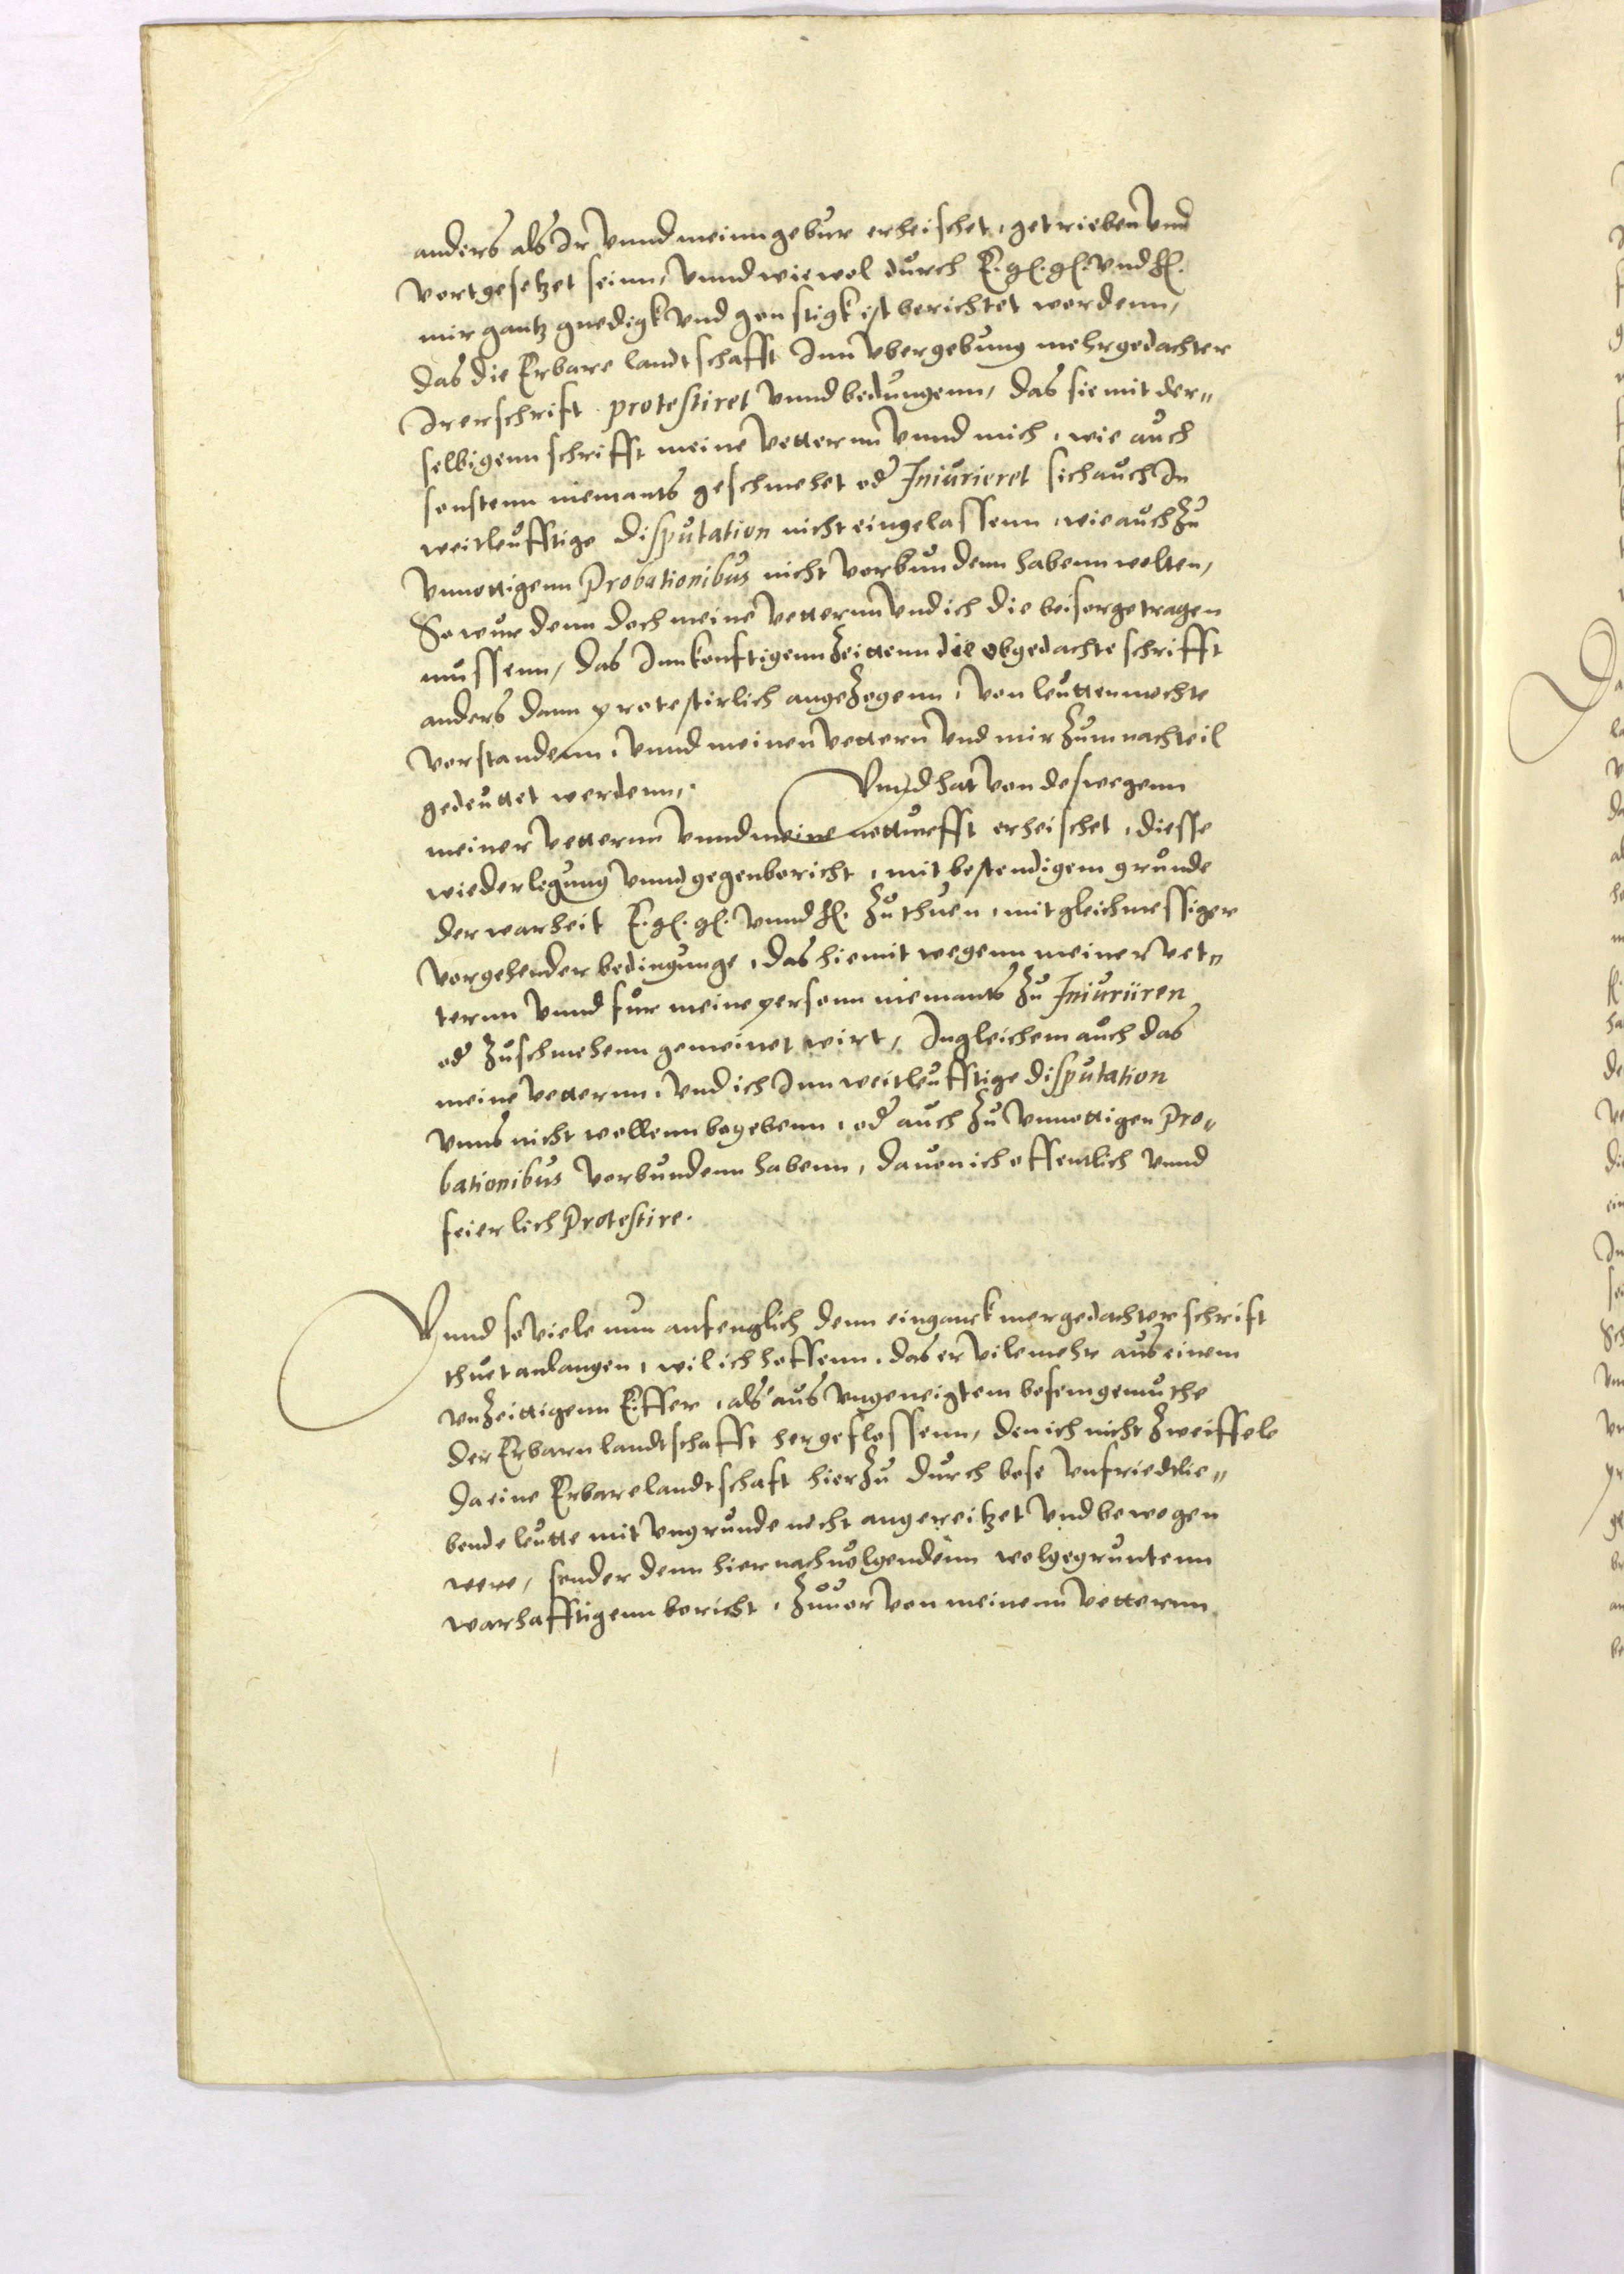 anders als Ir vnnd meinn gebur erheischet, getriebenn vnd
vortgesetzet seinn, vnnd wiewol durch E. gl. gl. vnd fl.
mir gantz gnedigk vnd gonstigk ist berichtet wordenn,
das die Erbare landtschafft Inn vbergebung mehrgedachter
Irer schrift protestiret vnnd bedungenn, das sie mit der„
selbigenn schrifft meine vetternn vnnd mich, wie auch
sonstenn niemants geschmehet od Iniurieret sich auch In
weitleufftige disputation nicht eingelassenn, wie auch zu
vnnottigenn Probationibus nicht verbundenn habenn wolten,
So wurdenn doch meine vetternn vnd ich die beisorge tragen
mussenn, das Inn konftigenn Zeittenn die obgedachte schrifft
anders dann protestirlich angezogenn, von leutten mochte
verstandenn, vnnd meinen vettern vnd mir zum nachteil
gedeuttet werdenn. Vnnd hat von deswegenn
meiner vetternn vnnd meine notturfft erheischet, diesse
wiederlegung vnnd gegenbericht, mit bestendigem grunde
der warheit E. gl. gl. vnnd fl. zu thuen, mit gleichmessiger
vorgehender bedingunge, das hiemit wegenn meiner vet„
ternn vnnd fur meine personn niemants zu Iniuriiren
od zu schmehenn gemeinet wirt, Ingleichem auch das
meine vetternn, vnd ich Inn weitleufftige disputation
vnns nicht wollenn begebenn, od auch zu vnnottigen pro„
bationibus verbundenn habenn, dauon ich offentlich vnnd
feierlich Protestire.
Vnnd so viele nun anfenglich denn einganck mergedachter schrift
thuet anlangen, wil ich hoffenn, das er vilemehr aus einem
vnzeittigenn Eiffer, als aus vngeneigtem bosem gemuthe
der Erbarn landtschafft hergeflossenn, den ich nicht zweiffele
da eine Erbare landtschaft hierzu durch bose vnfriedtlie„
bende leutte mit vngrunde nicht angereitzet vnd bewogen
were, sonder denn hiernachuolgendenn wolgegruntenn
warhafftigenn bericht, zuuor von meinenn vetternn